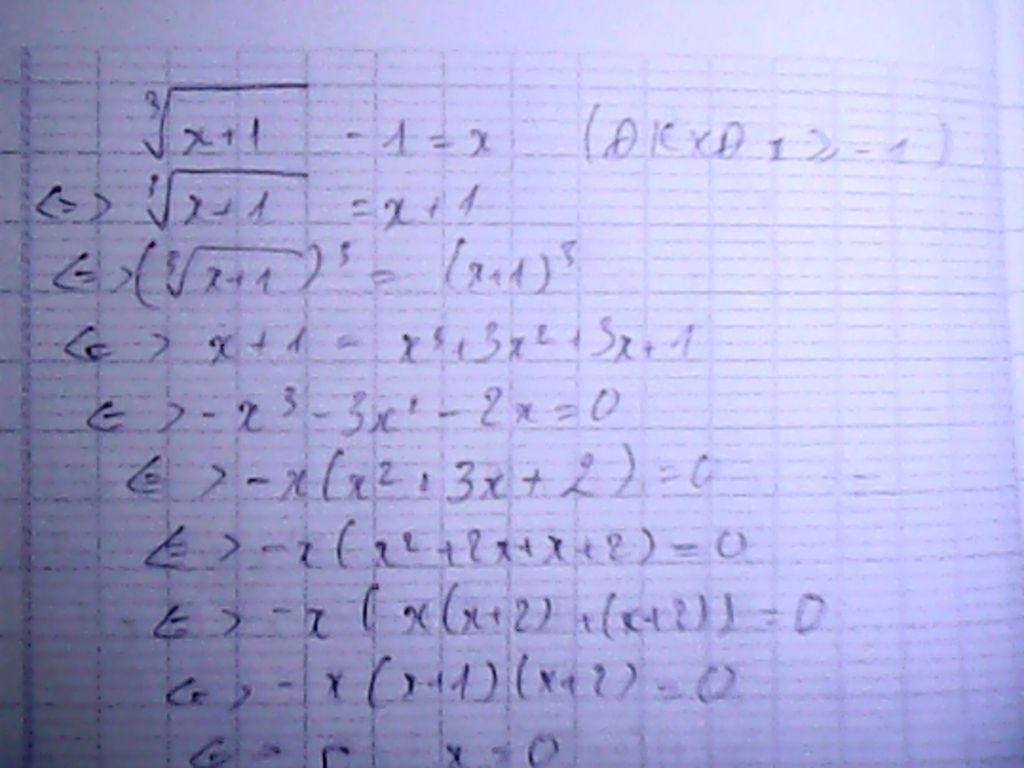 ∛(x+1) - 1 = x (ĐKXĐ x ≥ -1)
<=> ∛(x+1) = x+1
<=> (∛(x+1))³ = (x+1)³
<=> x+1 = x³+3x²+3x+1
<=> -x³-3x²-2x=0
<=> -x(x²+3x+2)=0
<=> -x(x²+2x+x+2)=0
<=> -x(x(x+2)+(x+2))=0
<=> -x(x+1)(x+2)=0
<=> x=0